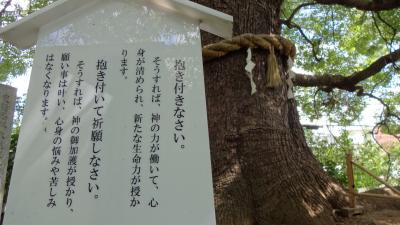 抱き付きなさい。
そうすれば、神の力が働いて、心
身が清められ、新たな生命力が授か
ります。
抱き付いて祈願しなさい。
そうすれば、神の御加護が授かり、
願い事は叶い、心身の悩みや苦しみ
はなくなります。